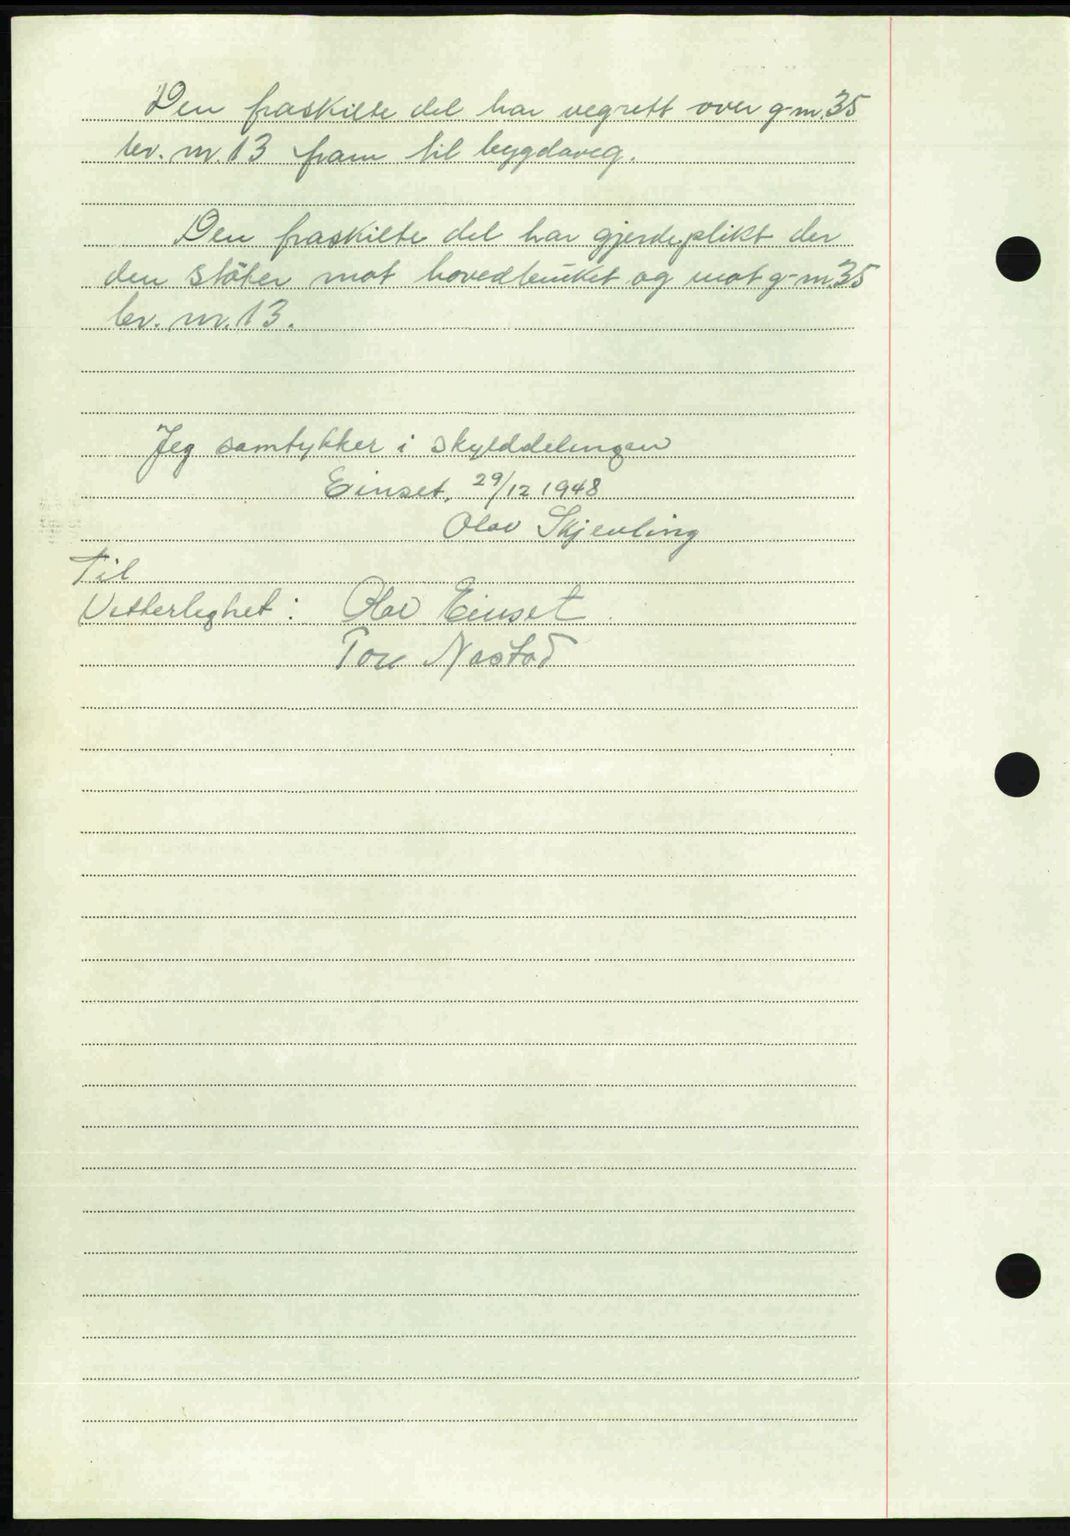 Den fraskilte del har vegrett over g-nr. 35
br. nr. 13 fram til bygdaveg.
Den fraskilte del har gjerdeplikt der
den stöter mot hovedbruket og mot g-nr. 35
br. nr. 13.
Jeg samtykker i skylddelingen
Einset, 29/12 1948
Olav Skjevling
Til
Vitterlighet: Olav Einset
Tore Nastad